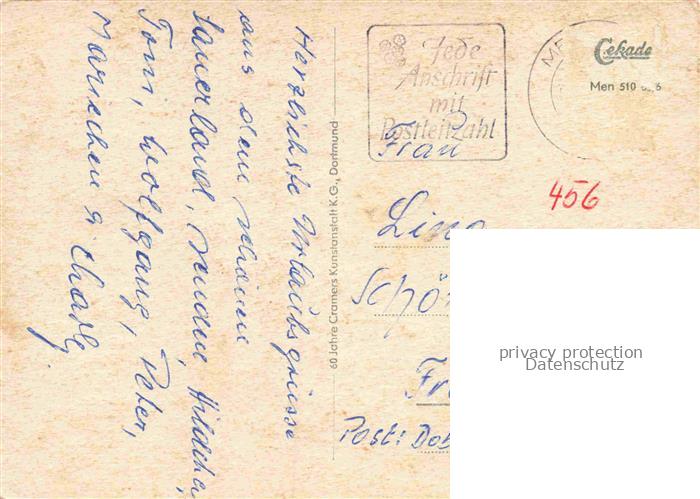 Herzlichste Urlaubsgrüsse
aus dem schönen
Sauerland, senden, Hildchen,
Toni, Wolfgang, Peter,
Mariechen u Charly.
60 Jahre Cramers Kunstanstalt K.G., Dortmund
Jede
Anschrift
mit
Postleitzahl
ME
Cekade
Men 510
456
Frau
Lina
Schö
Fr
Post: Dob
privacy protection
Datenschutz